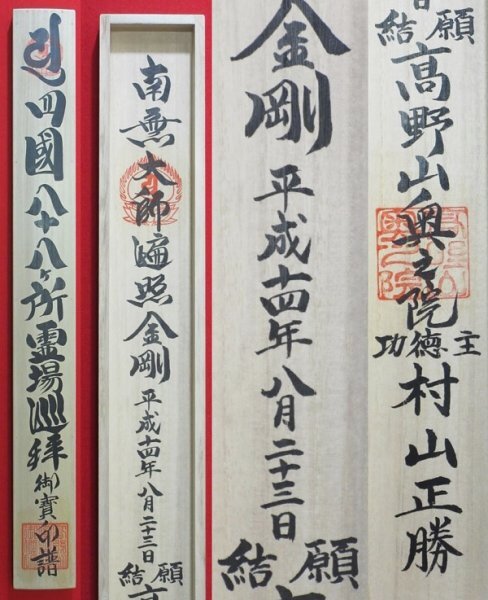 四國八十八ヶ所霊場巡拝御寶印譜
南無大師遍照金剛 平成十四年八月二十三日
結願
金剛 平成十四年八月二十三日
結願
結願
高野山奥之院
功徳主
村山正勝